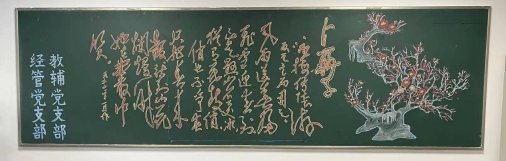 卜算子
风雨送春归
飞雪迎春到
已是悬崖百丈冰
犹有花枝俏
俏也不争春
只把春来报
待到山花烂漫时
她在丛中笑
教辅党支部
经管党支部